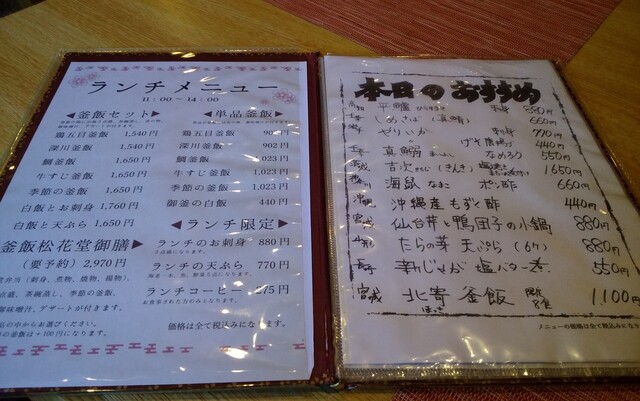 ランチメニュー
11:00〜14:00
◀釜飯セット▶
鶏五目釜飯 1,540円
深川釜飯 1,540円
鯛釜飯 1,650円
牛すじ釜飯 1,650円
季節の釜飯 1,650円
白飯とお刺身 1,760円
白飯と天ぷら 1,650円
釜飯松花堂御膳
(要予約) 2,970円
弁当(刺身、煮物、焼物、揚物)、
茶碗蒸し、季節の釜飯、
味噌汁、デザートが付きます。
の中からお選びください。
の釜飯は+100円になります。
◀単品釜飯▶
鶏五目釜飯
深川釜飯 902円
鯛釜飯 1,023円
牛すじ釜飯 1,023円
季節の釜飯 1,023円
御釜の白飯 440円
◀ランチ限定▶
ランチのお刺身 880円
ランチの天ぷら 770円
ランチコーヒー 275円
お食事された方のみとなります。
価格は全て税込みになります。
本日のおすすめ
平鱸 刺身 880円
しめさば(真鯖) 660円
やりいか 刺身 770円
げそ唐揚げ 440円
真鯛 なめろう 550円
吉次(きんき) 1650円
海鼠 なまこ ポン酢 660円
沖縄 沖縄産もずく酢 440円
宮城 仙台芹と鴨団子の小鍋 880円
山形 たらの芽 天ぷら(6ケ) 880円
新じゃが 塩バター煮 550円
宮城 北寄 釜飯 1,100円
ほっき
メニューの価格は全て税込みにな